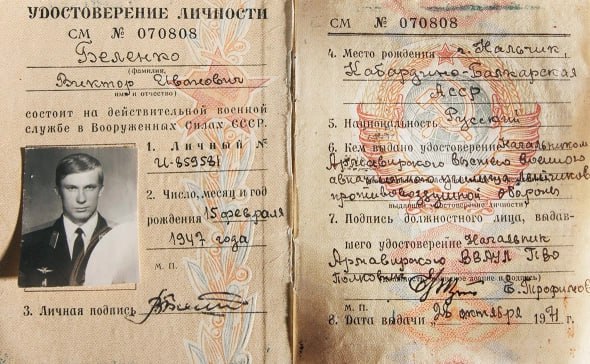 УДОСТОВЕРЕНИЕ ЛИЧНОСТИ
СМ № 070808
Беленко
(фамилия,
Виктор Иванович
имя и отчество)
состоит на действительной военной
службе в Вооруженных Силах СССР.
1. Личный №
И-859581
2. Число, месяц и год
рождения 15 февраля
1947 года
М. П.
3. Личная подпись
СМ № 070808
4. Место рождения г. Нальчик,
Кабардино-Балкарская
Асср
5. Национальность Русский
6. Кем выдано удостоверение Начальником
Армавирского высшего военного
авиационного училища лётчиков
противовоздушной обороны
7. Подпись должностного лица, выдав-
шего удостоверение Начальник
Армавирского ВВАУЛ ПВО
Полковник Е. Трофимов
М. П.
8. Дата выдачи „26 октября 1971 г.